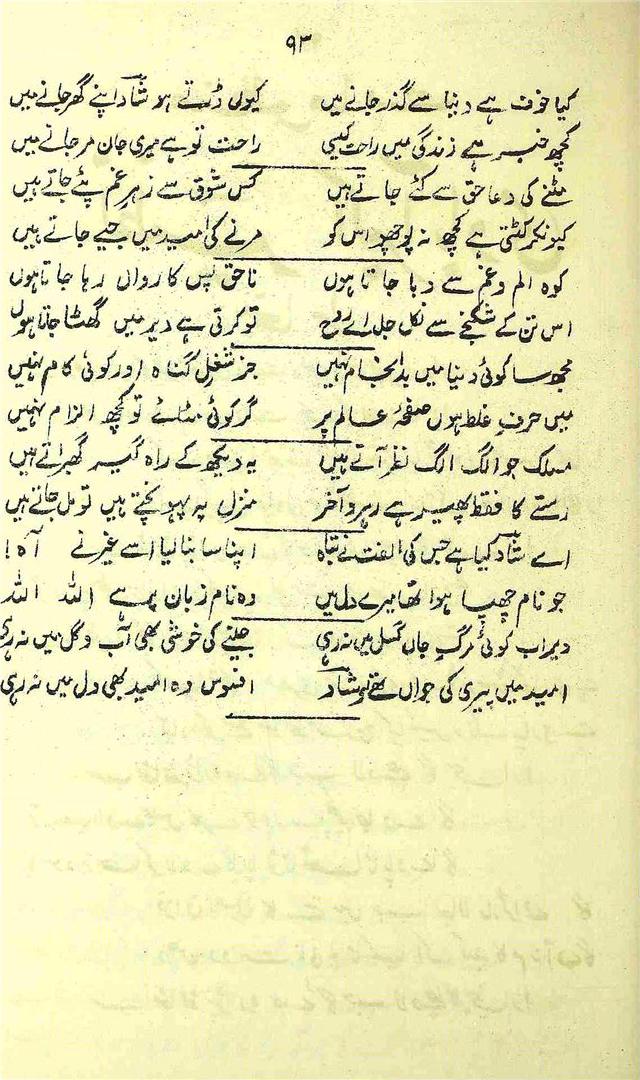 ۹۳
کیا خوف ہے دنیا سے گذر جانے میں کیوں ڈرتے ہو شاد اپنے گھر جانے میں
کچھ خبر ہے زندگی میں راحت کیسی راحت تو ہے میری جان مر جانے میں
مٹنے کی دعا حق سے کئے جاتے ہیں کس شوق سے زہر غم پئے جاتے ہیں
کیونکر کٹتی ہے کچھ نہ پوچھو اس کو مرنے کی امید میں جیے جاتے ہیں
کوہ الم و غم سے دبا جاتا ہوں ناحق پس کارواں رہا جاتا ہوں
اس تن کے شکنجے سے نکل جل اے روح تو کرتی ہے دیر میں گھٹا جاتا ہوں
مجھ سا کوئی دنیا میں بد انجام نہیں جز شغلِ گناہ اور کوئی کام نہیں
میں حرفِ غلط ہوں صفحۂ عالم پر گر کوئی مٹائے تو کچھ الزام نہیں
مسلک جو الگ الگ نظر آتے ہیں یہ دیکھ کے راہ گیر گھبراتے ہیں
رستے کا فقط پھیر ہے رہرو آخر منزل پہ پہونچتے ہیں تو مل جاتے ہیں
اے شاد کیا ہے جس کی الفت نے تباہ اپنا سا بنا لیا اسے غیر نے آہ!
جو نام چھپا ہوا تھا میرے دل میں وہ نام زبان پر ہے اللہ اللہ
دیر اب کوئی مرگِ جاں گسل میں نہ رہی جینے کی خوشی بھی آب و گل میں نہ رہی
امید میں پیری کی جواں تھے شاد افسوس وہ امید بھی دل میں نہ رہی